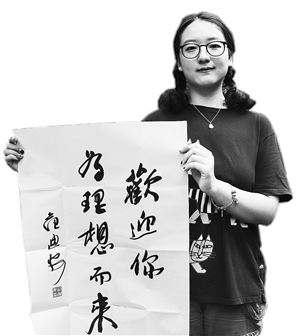 歡迎你
為理想而來